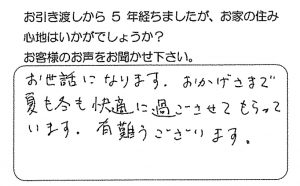 お引き渡しから 5 年経ちましたが、お家の住み
心地はいかがでしょうか?
お客様のお声をお聞かせ下さい。
お世話になります。おかげさまで
夏も冬も快適に過ごさせてもらって
います。有難うございます。